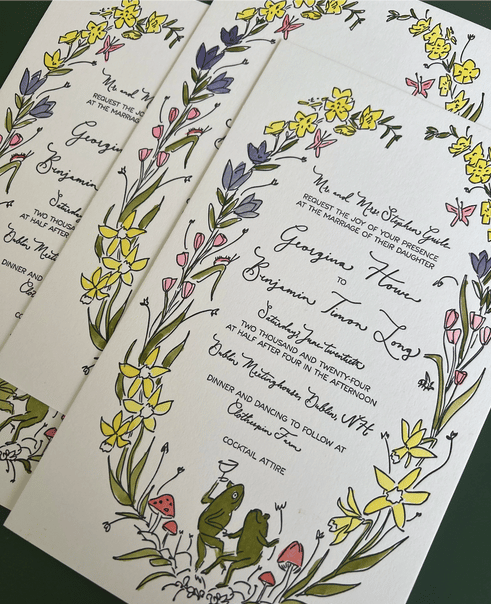 Mr. and M
REQUEST THE JO
AT THE MARRIAG
Georgin
Benjamin
Saturda
TWO THOUSA
AT HALF AFTE
Dublin Meeti
DINNER AND
CO
Mr. and Mrs. Stephen
REQUEST THE JOY OF YOUR PRESENCE
AT THE MARRIAGE OF THEIR DAUGHTER
Georgina Howe
TO
Benjamin Timon Long
Saturday, June twentieth
TWO THOUSAND AND TWENTY-FOUR
AT HALF AFTER FOUR IN THE AFTERNOON
Dublin Meetinghouse, Dublin, NH
DINNER AND DANCING TO FOLLOW AT
Farm
COCKTAIL ATTIRE